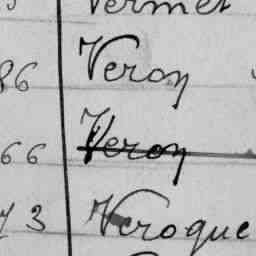 Vermet
86 Veron
66 Veron
73 Veroque